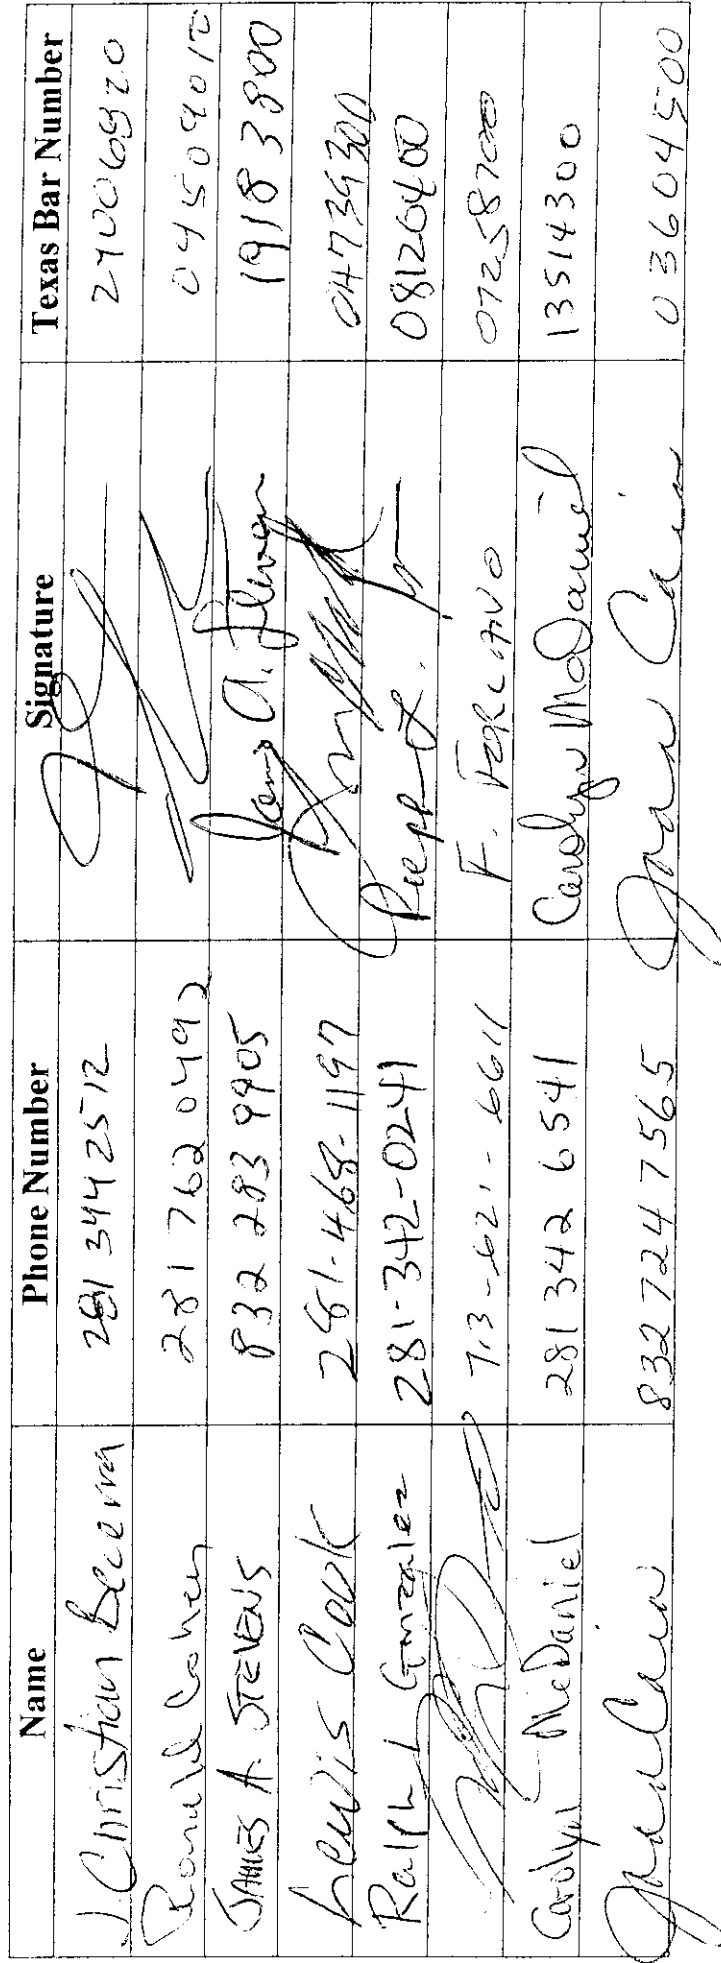 Name Phone Number Signature Texas Bar Number
J. Christian Becerra 281 344 2512 24006920
Ronald Cohen 281 762 0492 04509012
JAMES A. STEVENS 832 283 9905 James A. Stevens 19183800
Lewis Cook 281-468-1197 04739300
Ralph L Gonzalez 281-342-0241 08126400
713-621-6611 F. FORLANO 07258700
Carolyn McDaniel 281 342 6541 Carolyn McDaniel 13514300
Jana Cain 832 724 7565 Jana Cain 03604500